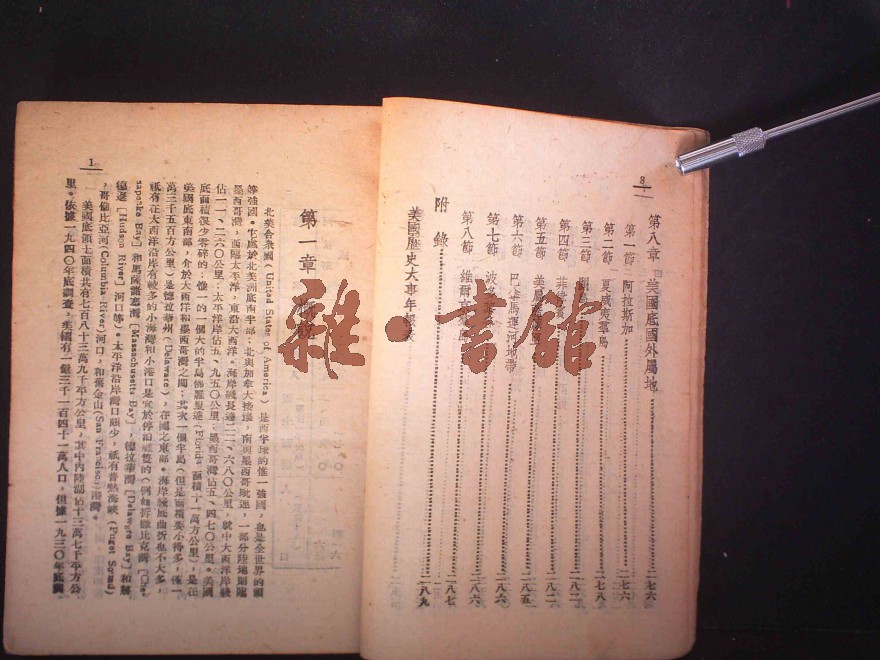 8
第八章 美國底國外屬地……二七六
第一節 阿拉斯加……二七六
第二節 夏威夷羣島……二七八
第三節
第四節 菲律賓……二八二
第五節 美屬……二八五
第六節 巴拿馬運河地帶……二八六
第七節 波……二八六
第八節 維爾京……二八七
附錄
美國歷史大事年……表……二八九
雜·書館
1
第一章 概說
北美合衆國(United States of America)是西半球的惟一強國,也是全世界的頭
等強國。它底於北美洲底南半部:北與加拿大接壤,南與墨西哥毗連,一部分陸地瀕臨
墨西哥灣,西臨太平洋,東沿大西洋。海岸綫長達二二、六八〇公里,就中大西洋岸綫
佔一一、二六〇公里;太平洋岸佔五、九五〇公里;墨西哥灣佔五、四七〇公里。美國
底面積很少零碎的:惟一的一個大的半島佛羅里達(Florida 面積十一萬方公里),是在
美國底東南部,介於大西洋和墨西哥灣之間;其次一個半島(但是面積要小得多,僅一
萬三千五百方公里)是德拉華州(Delaware),在國之東部。海岸綫底曲折也不大多,
祇有在大西洋沿岸有較多的小海灣和小港口是宜於停泊船隻的(例如折撒比克灣[Che-
sapeake Bay]和馬薩諸塞灣[Massachusetts Bay],德拉華灣[Delaware Bay]和赫
德遜[Hudson River]河口等)。太平洋沿岸灣口頗少,祇有普熱海峽(Puget Sound)
,哥倫比亞河(Columbia River)河口,和舊金山(San Francisco)港灣。
美國底領土面積共有七百八十三萬九千平方公里,其中內陸湖佔十三萬七千平方公
里。依據一九四〇年底調查,美國有一億三千一百四十一萬人口,但據一九三〇年底調